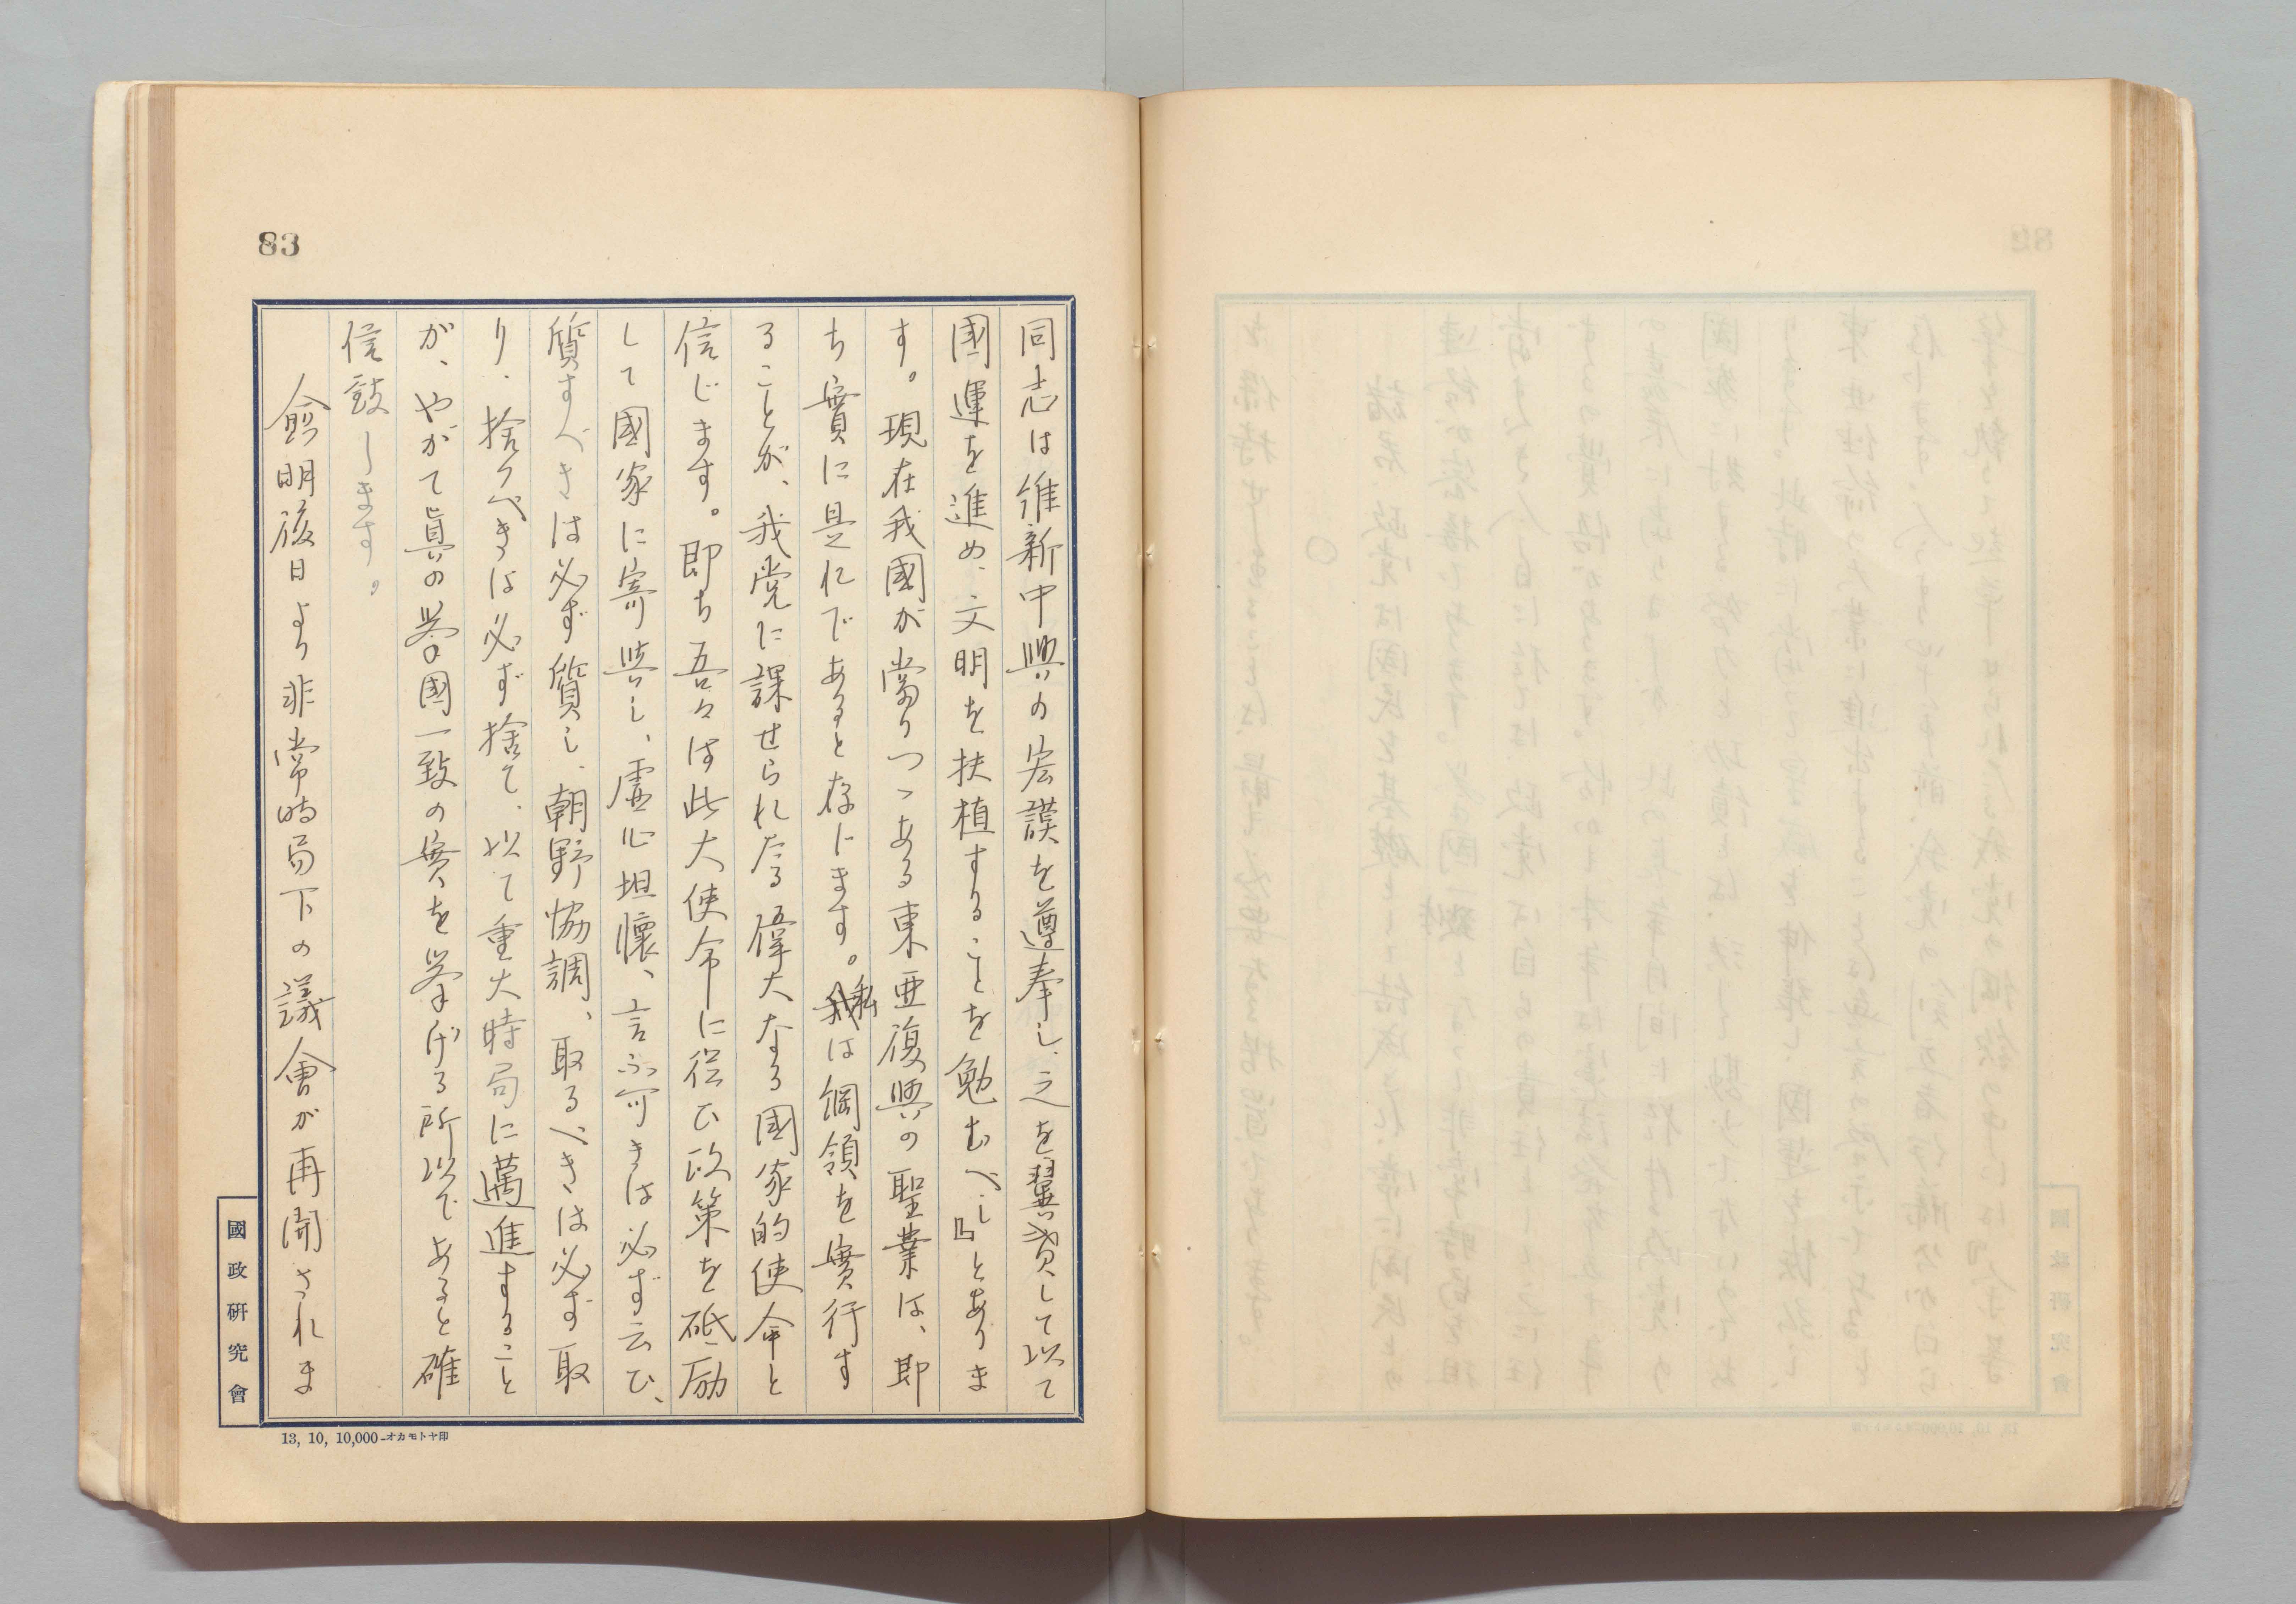 83
同志は維新中興の宏謨を遵奉し、之を翼賛して以て
國運を進め、文明を扶植することを勉むべし』とありま
す。現在我國が當りつつある東亜復興の聖業は、即
ち實に是れであると存じます。私は綱領を實行す
ることが、我党に課せられたる偉大なる國家的使命と
信じます。即ち吾々は此大使命に従ひ政策を砥励
して國家に寄與し、虚心坦懐、言ふ可きは必ず云ひ、
質すべきは必ず質し、朝野協調、取るべきは必ず取
り、捨つべきは必ず捨て、以て重大時局に邁進すること
が、やがて眞の挙國一致の実を挙げる所以であると確
信致します。
愈明後日より非常時局下の議會が再開されま
國政研究會
13, 10, 10,000-オカモトヤ印